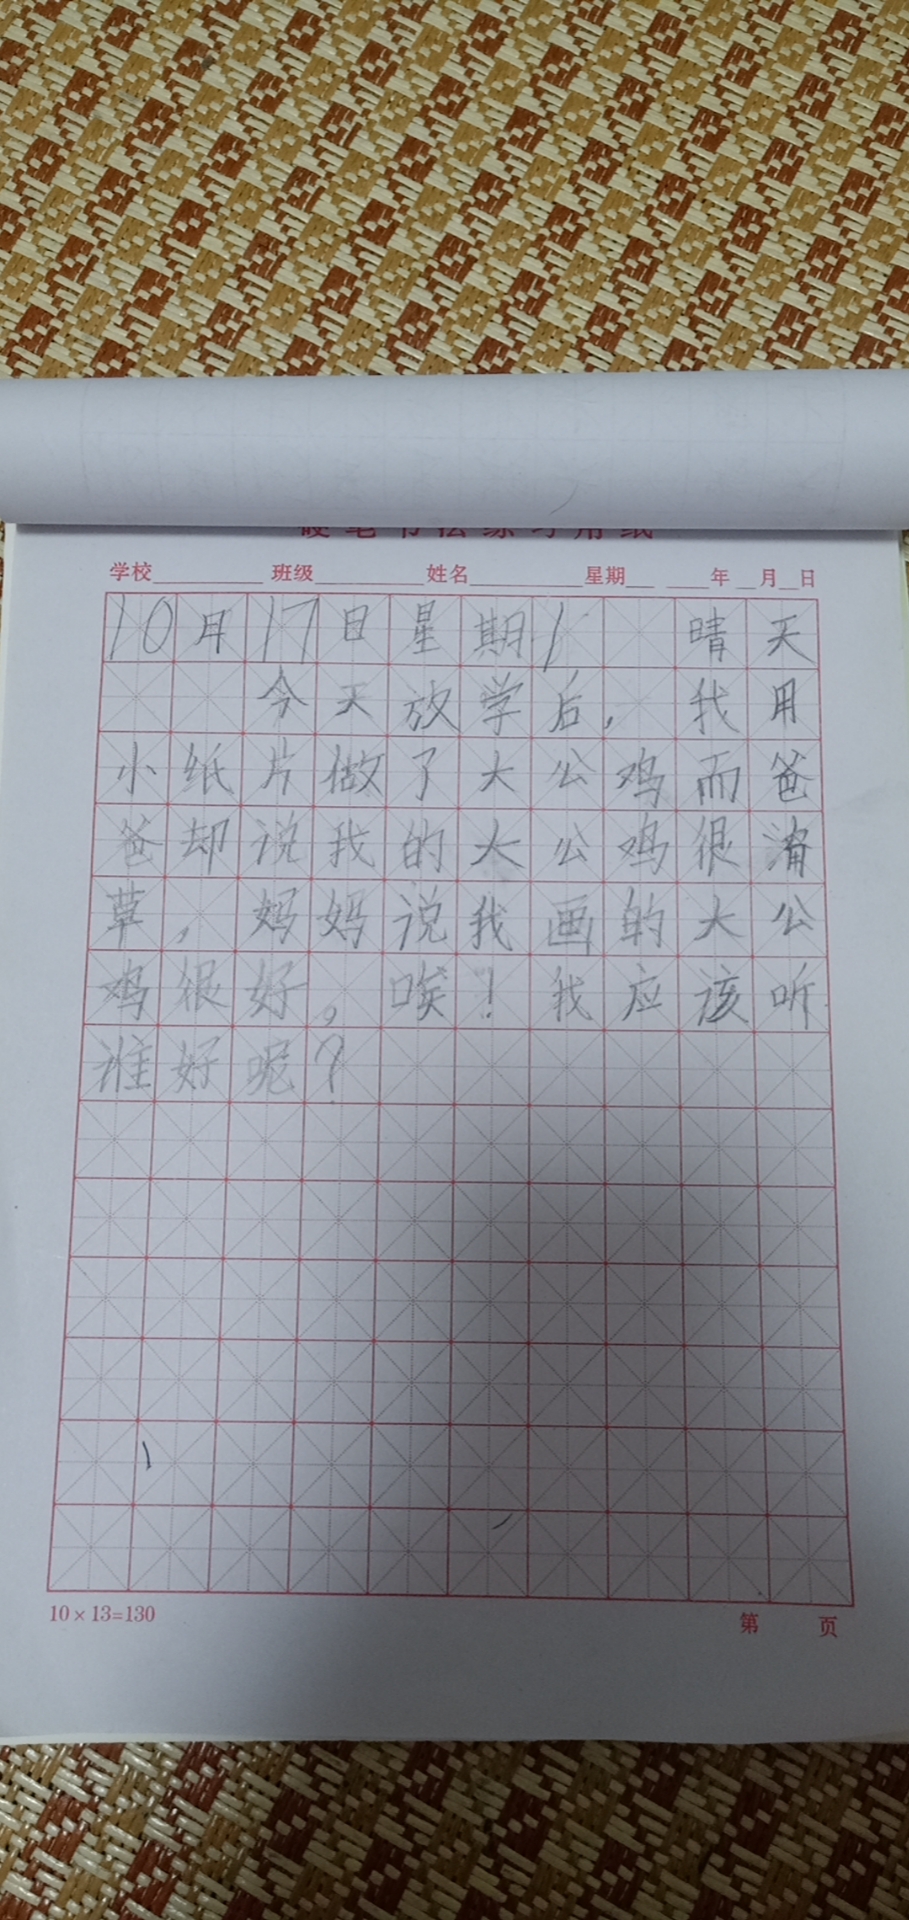 硬笔书法练习用纸
学校 班级 姓名 星期 年 月 日
10月17日星期1 晴天
今天放学后,我用
小纸片做了大公鸡而爸
爸却说我的大公鸡很
草,妈妈说我画的大公
鸡很好,唉!我应该听
谁好呢?
10×13=130
第 页